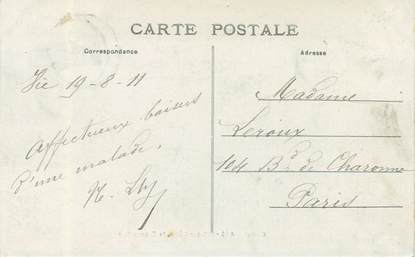 CARTE POSTALE
Correspondance
Vic 19-8-11
Affectueux baisers
d'une malade.
Adresse
Madame
Leroux
104 Bd. de Charonne
Paris